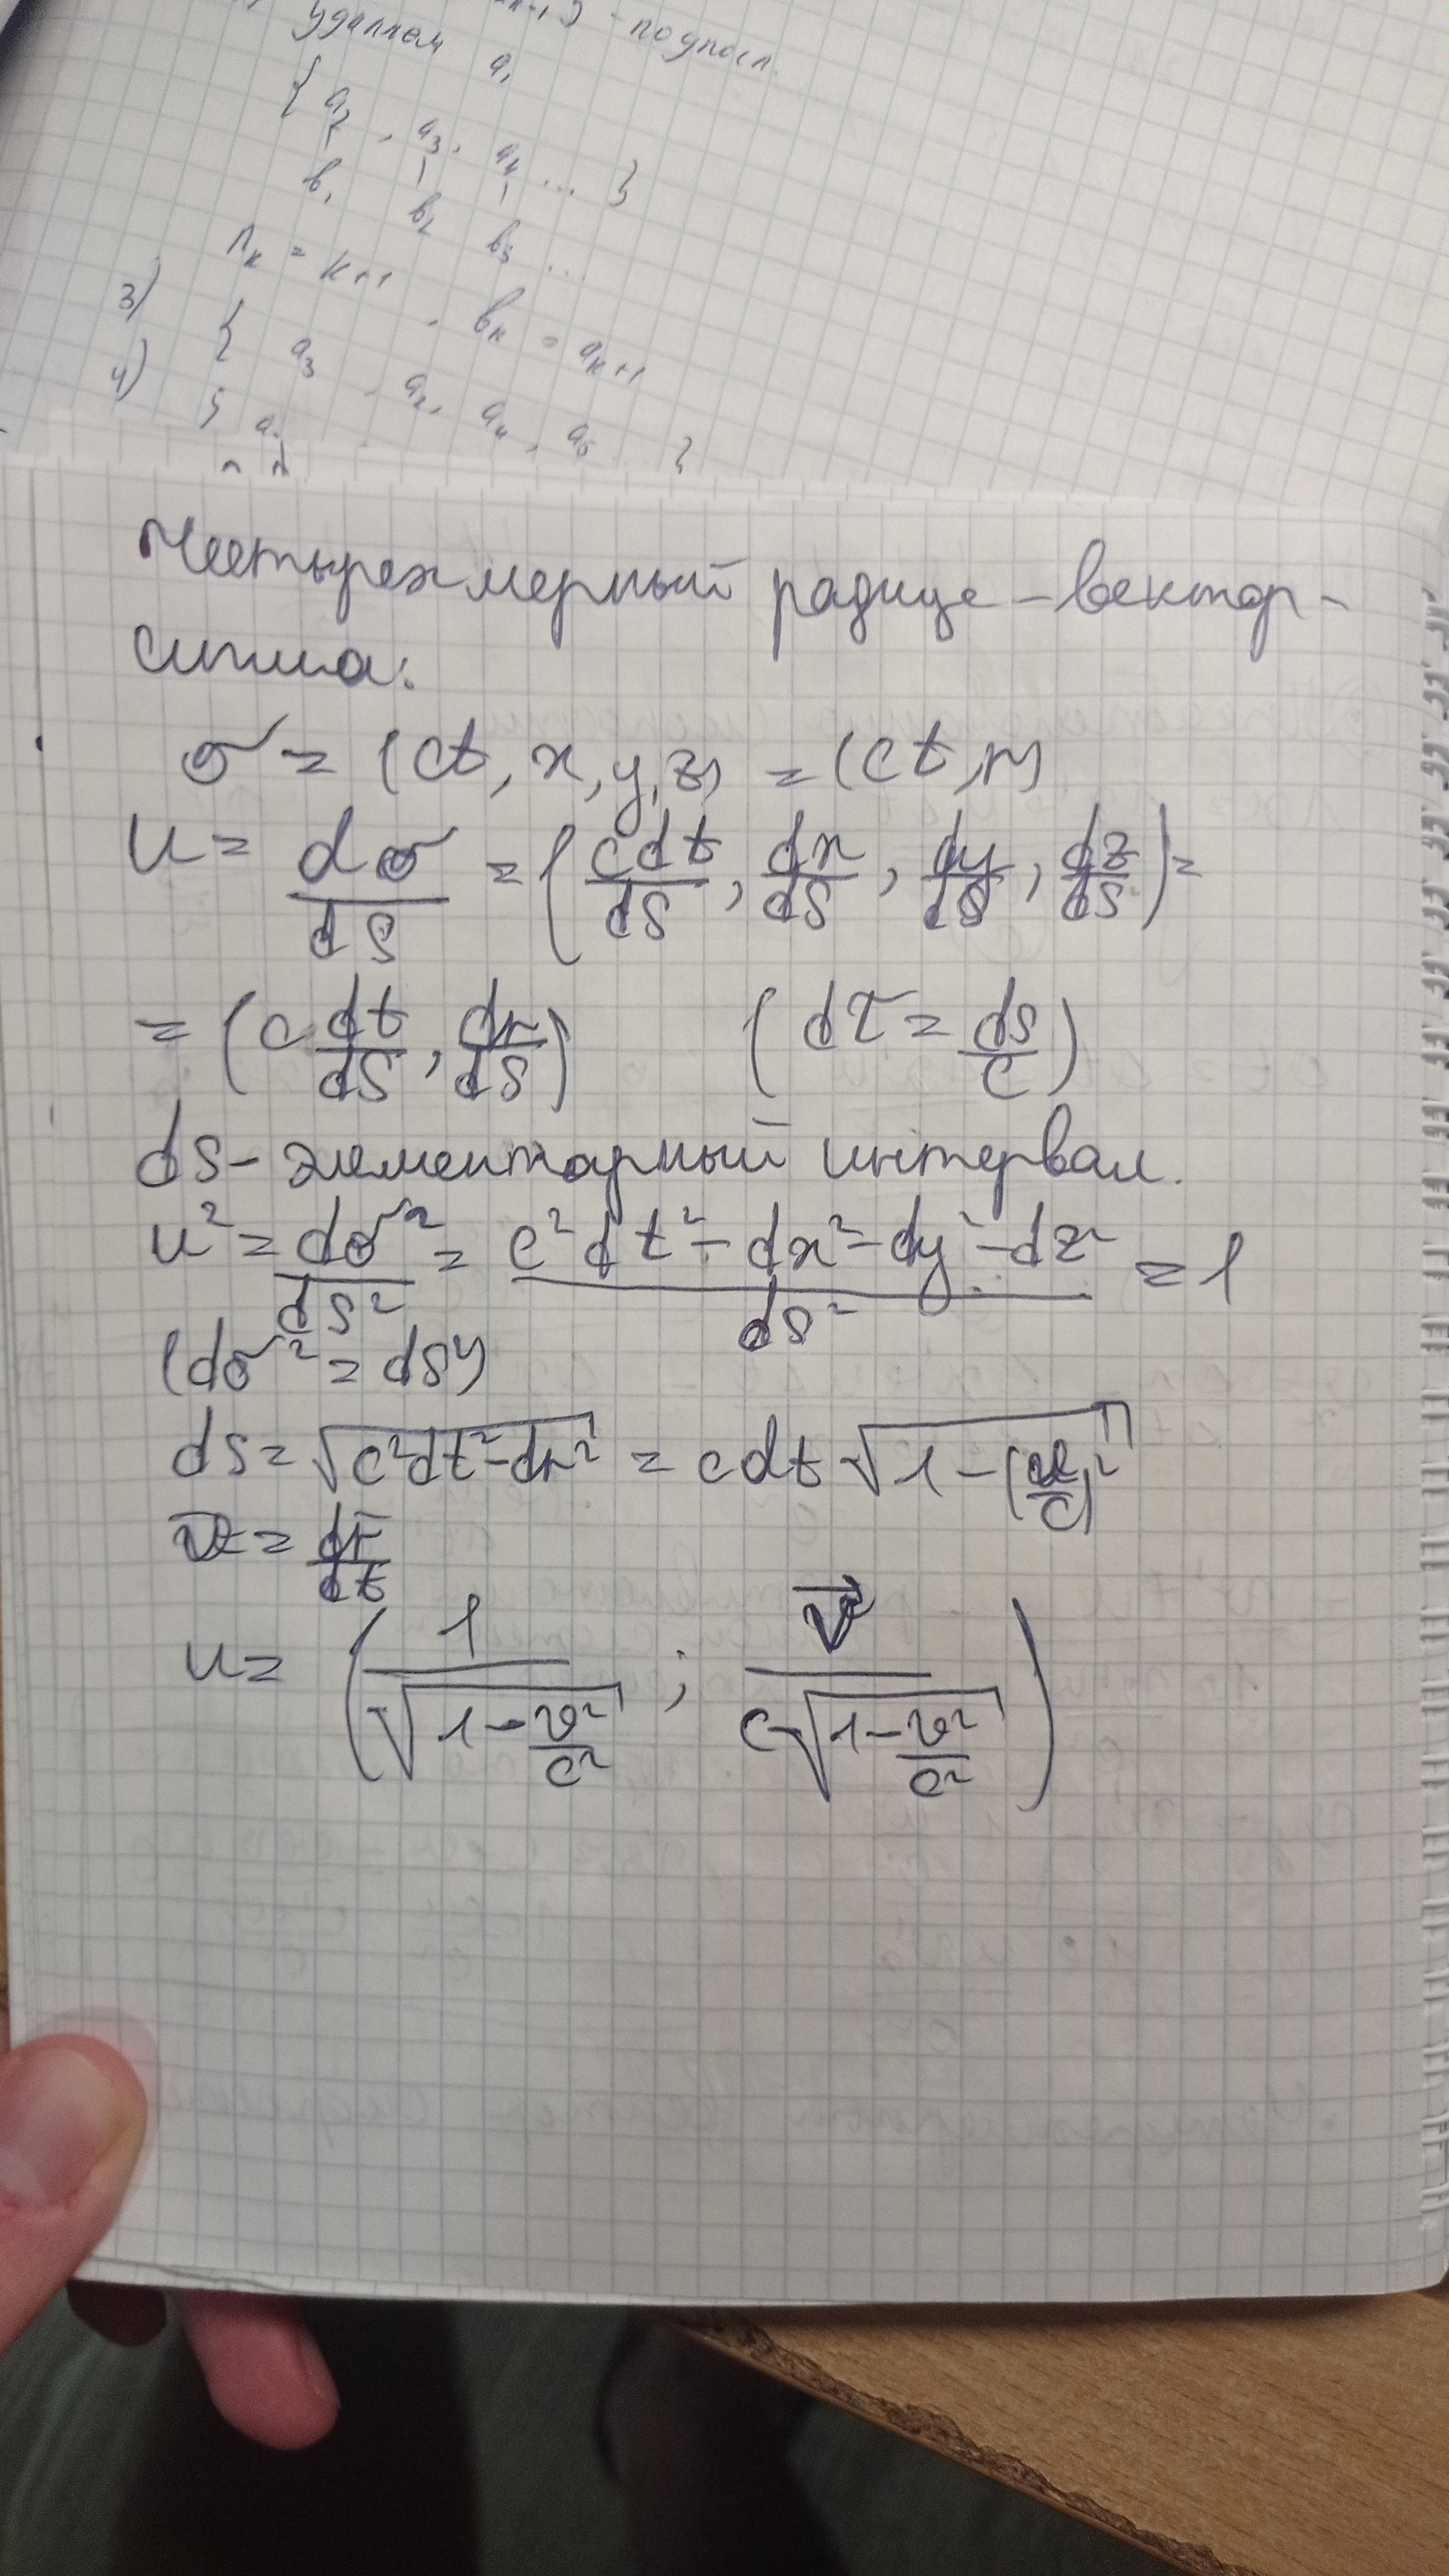 удаляем a₁ - подпосл.
{ a₂, a₃, a₄ ... }
b₁ b₂ b₃ ...
nₖ = k+1, bₖ = aₖ₊₁
3) { a₃, a₂, a₄, a₅ }
4) {
Четырехмерный радиус-вектор-
σ = (ct, x, y, z) = (ct, r)
u = dσ/ds = (cdt/ds, dx/ds, dy/ds, dz/ds) =
= (c dt/ds, dr/ds) (dτ = ds/c)
ds - элементарный интервал.
u² = dσ²/ds² = (c²dt² - dx² - dy² - dz²)/ds² = 1
(dσ² = ds²)
ds = √(c²dt² - dr²) = cdt √(1 - (v/c)²)
v̅ = dr̅/dt
u = (1/√(1 - v²/c²) ; v⃗/(c√(1 - v²/c²)))